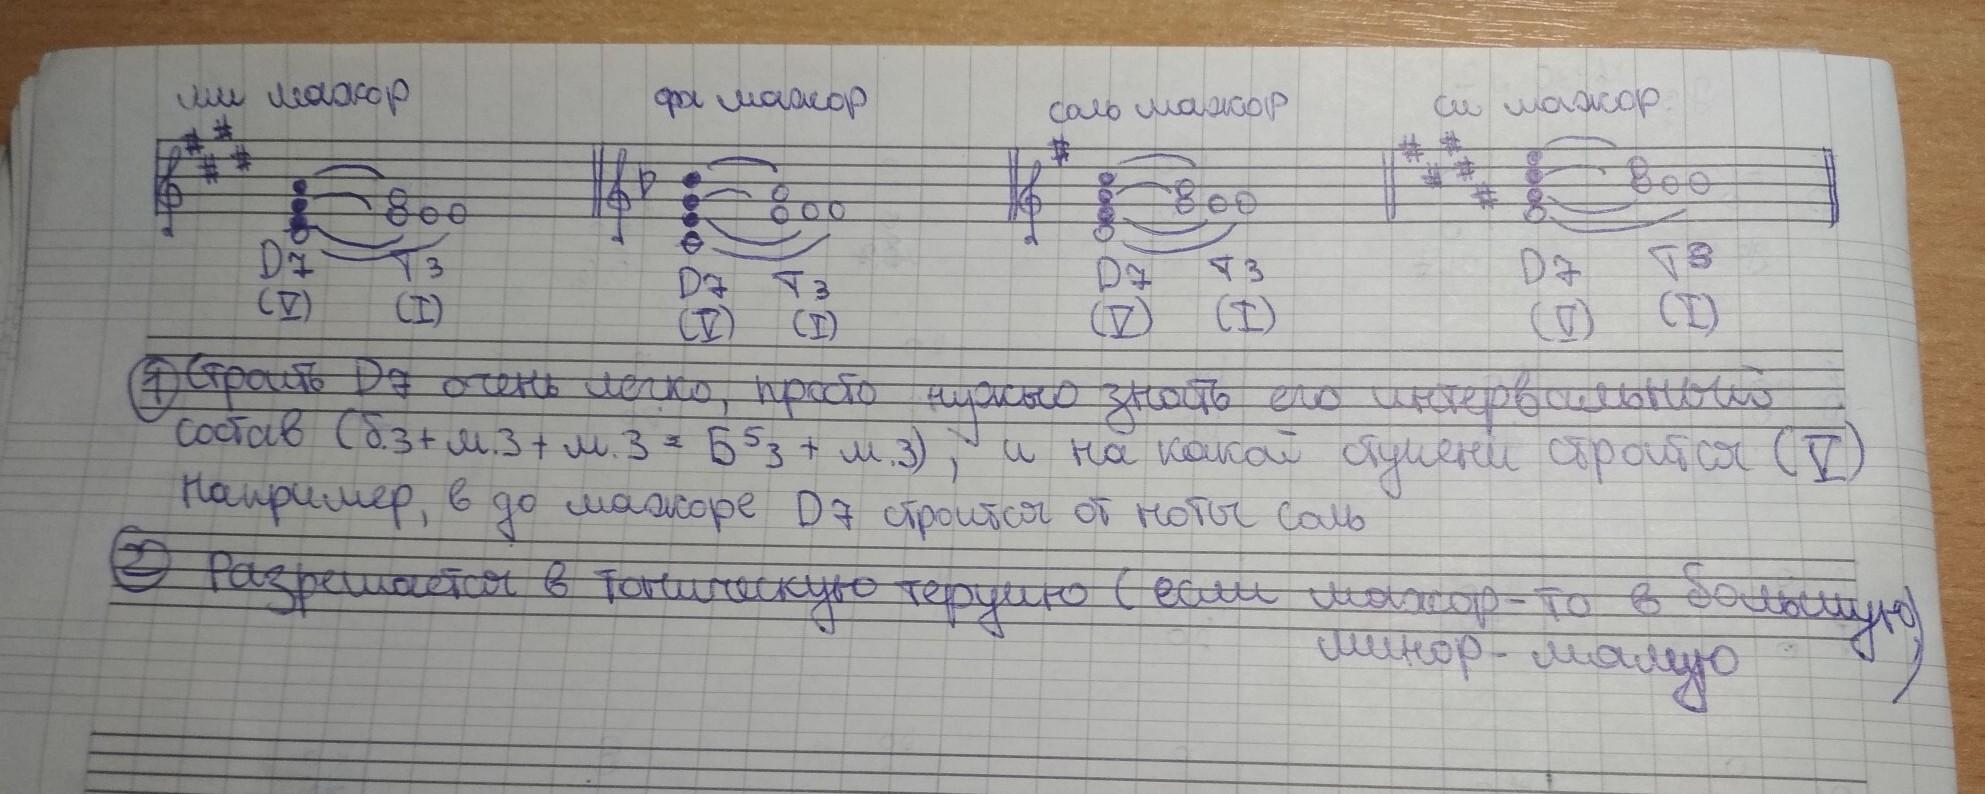 ми мажор фа мажор соль мажор си мажор
D7 T3 D7 T3 D7 T3 D7 T3
(V) (I) (V) (I) (V) (I) (V) (I)
① Строить D7 очень легко, просто нужно знать его интервальный
состав (б.3+м.3+м.3 = Б⁵₃ + м.3), и на какой ступени строится (V)
Например, в до мажоре D7 строится от ноты соль
② Разрешается в тоническую терцию (если мажор-то в большую,
минор-малую)